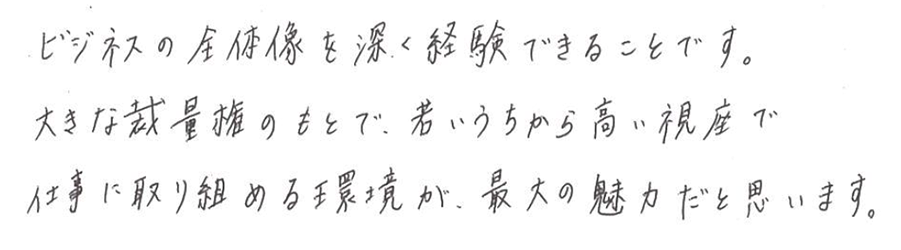 ビジネスの全体像を深く経験できることです。
大きな裁量権のもとで、若いうちから高い視座で
仕事に取り組める環境が、最大の魅力だと思います。